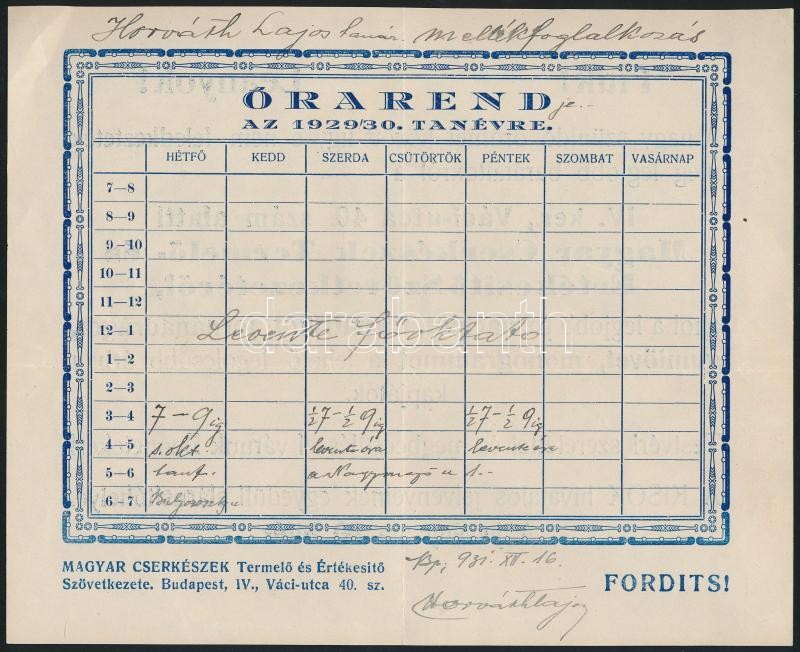 Horváth Lajos tanár mellékfoglalkozás
ÓRARENDje.-
AZ 1929/30. TANÉVRE.
HÉTFŐ KEDD SZERDA CSÜTÖRTÖK PÉNTEK SZOMBAT VASÁRNAP
7—8
8—9
9—10
10—11
11—12
12—1 Levente főoktató
1—2
2—3
3—4 7 - 9 ig ½7 - ½9 ig ½7 - ½9 ig
4—5 s. okt. levente óra levente óra
5—6 tanf. a Nagymező u 1.-
6—7
darabanth
MAGYAR CSERKÉSZEK Termelő és Értékesitő
Szövetkezete. Budapest, IV., Váci-utca 40. sz.
Bp, 931. XII. 16.
Horváth Lajos
FORDITS!